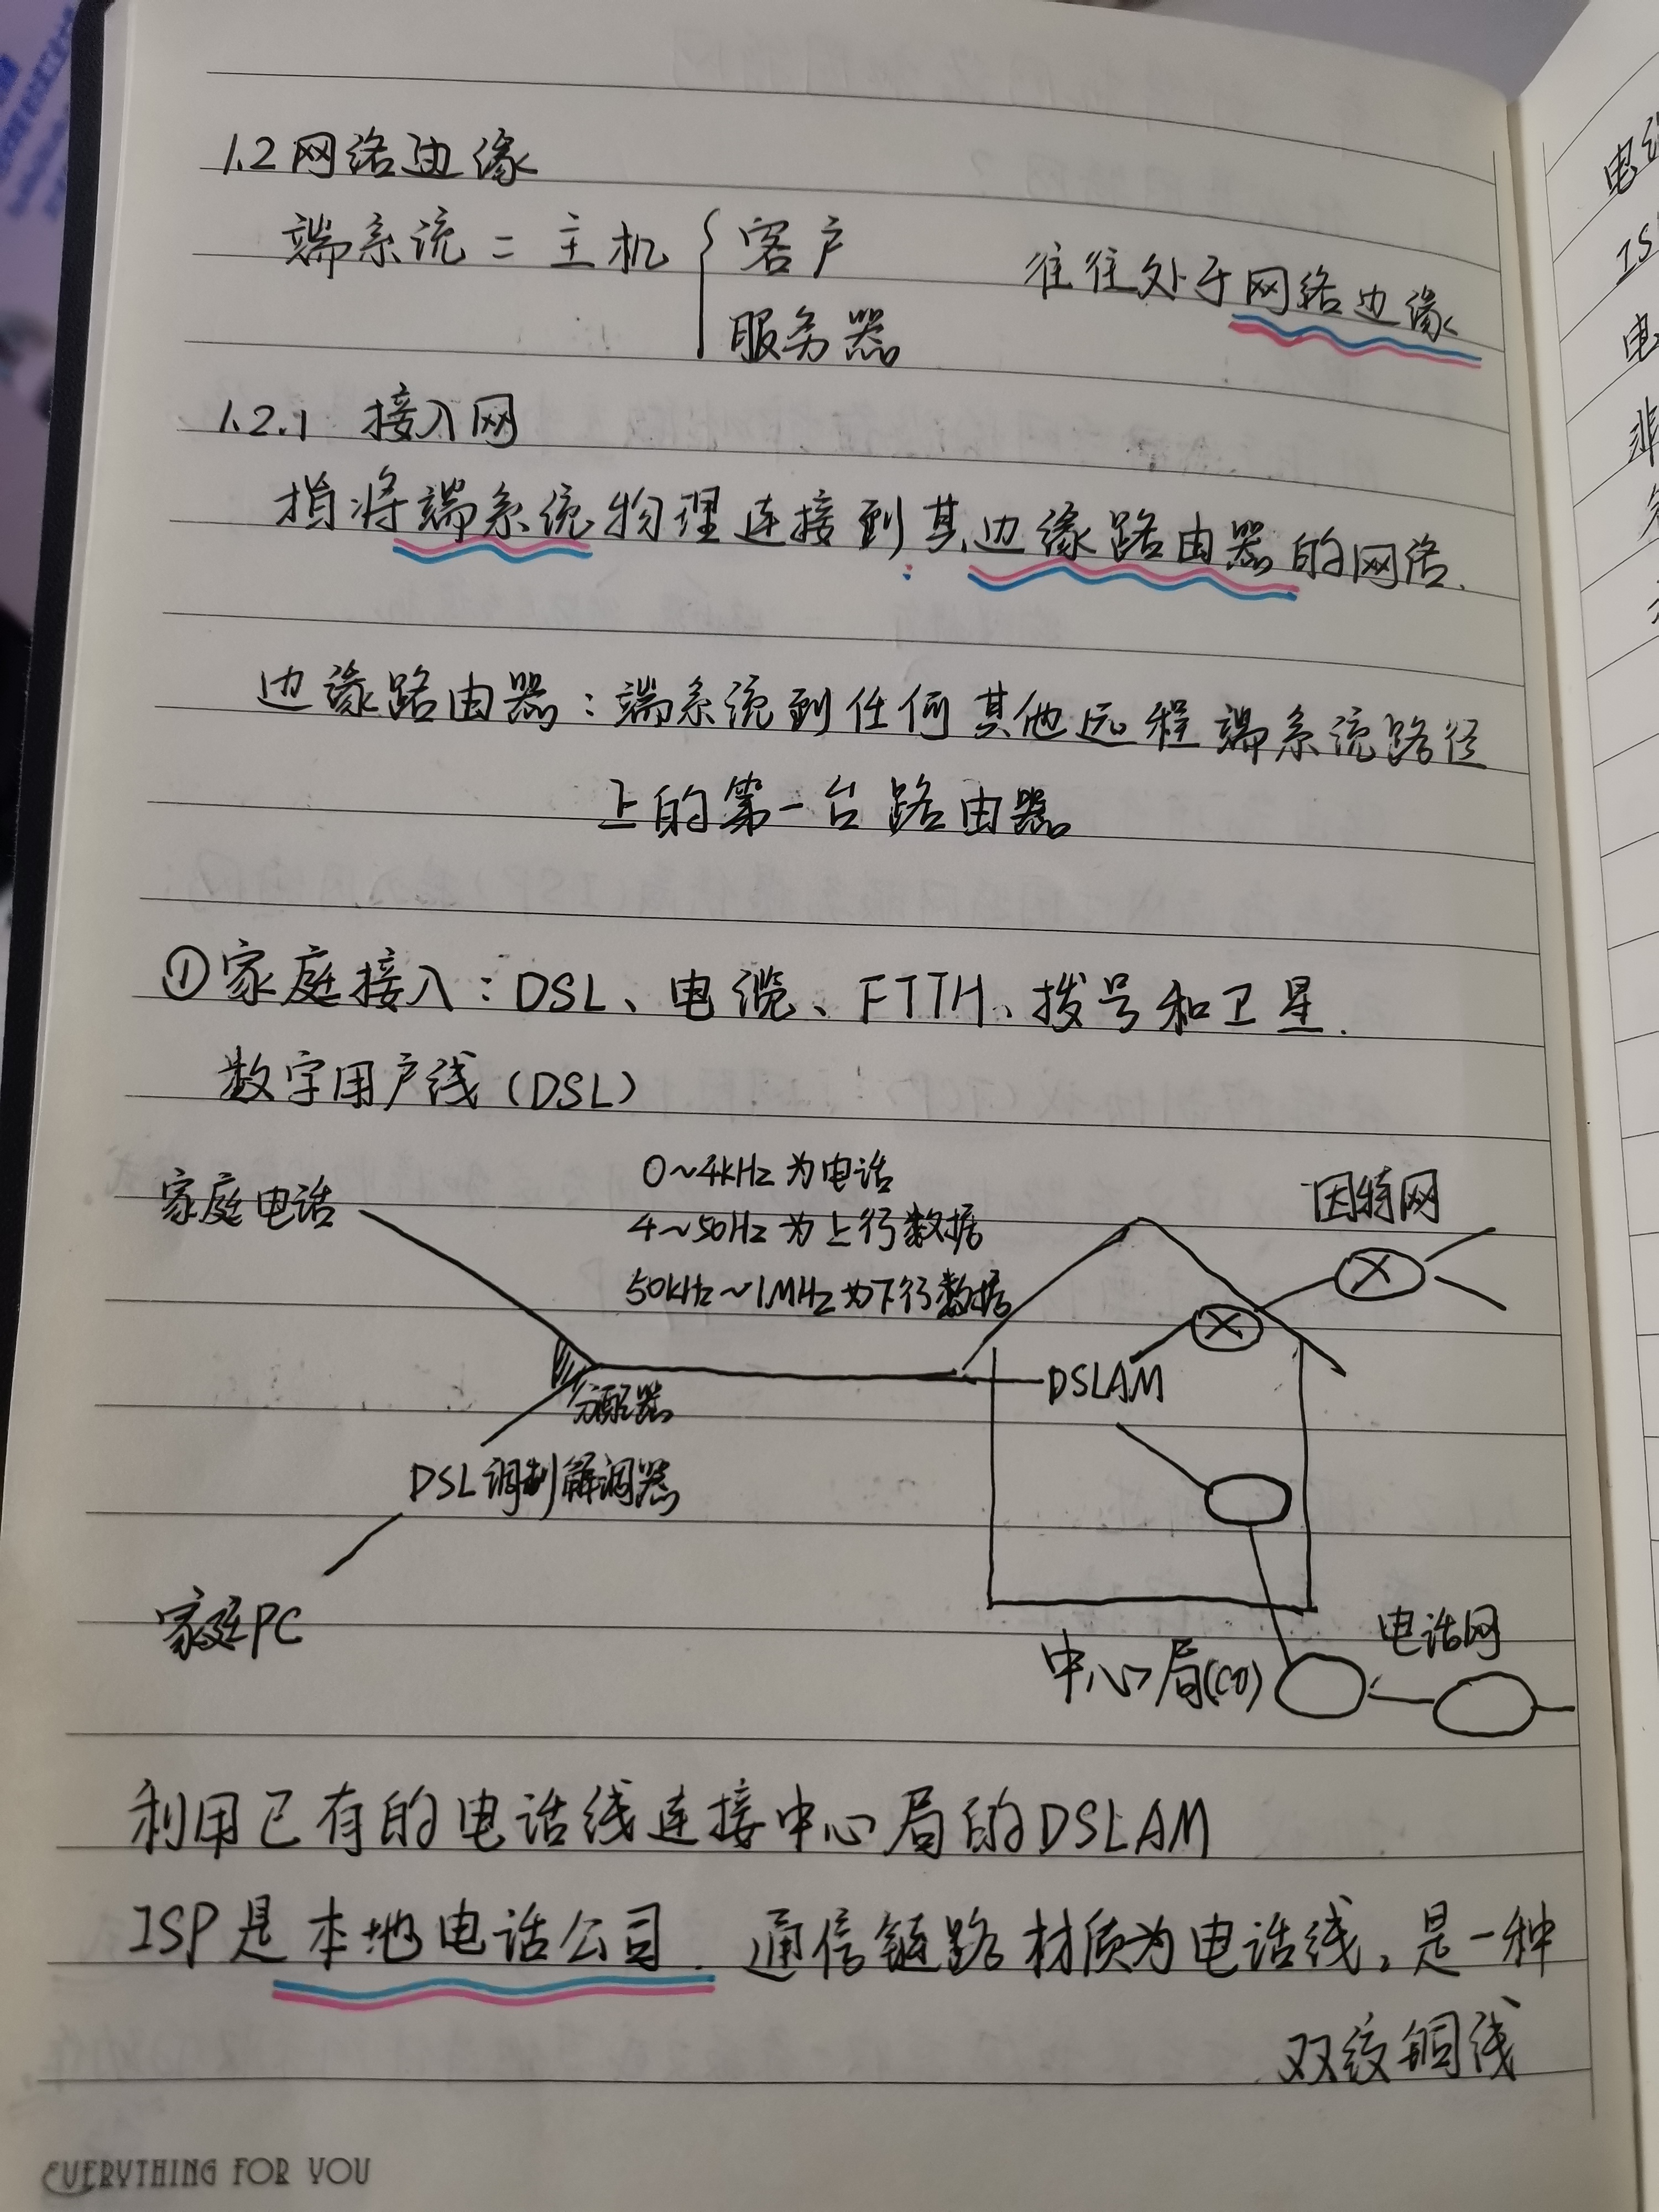 1.2 网络边缘
端系统 = 主机 { 客户 往往处于网络边缘
服务器
1.2.1 接入网
指将端系统物理连接到其边缘路由器的网络.
边缘路由器:端系统到任何其他远程端系统路径
上的第一台路由器
①家庭接入:DSL、电缆、FTTH、拨号和卫星.
数字用户线(DSL)
家庭电话
0~4kHz为电话
4~50Hz为上行数据
50kHz~1MHz为下行数据
因特网
分配器
DSLAM
DSL调制解调器
家庭PC
中心局(CO)
电话网
利用已有的电话线连接中心局的DSLAM
ISP是本地电话公司. 通信链路材质为电话线,是一种
双绞铜线
EVERYTHING FOR YOU
电
IS
电
非